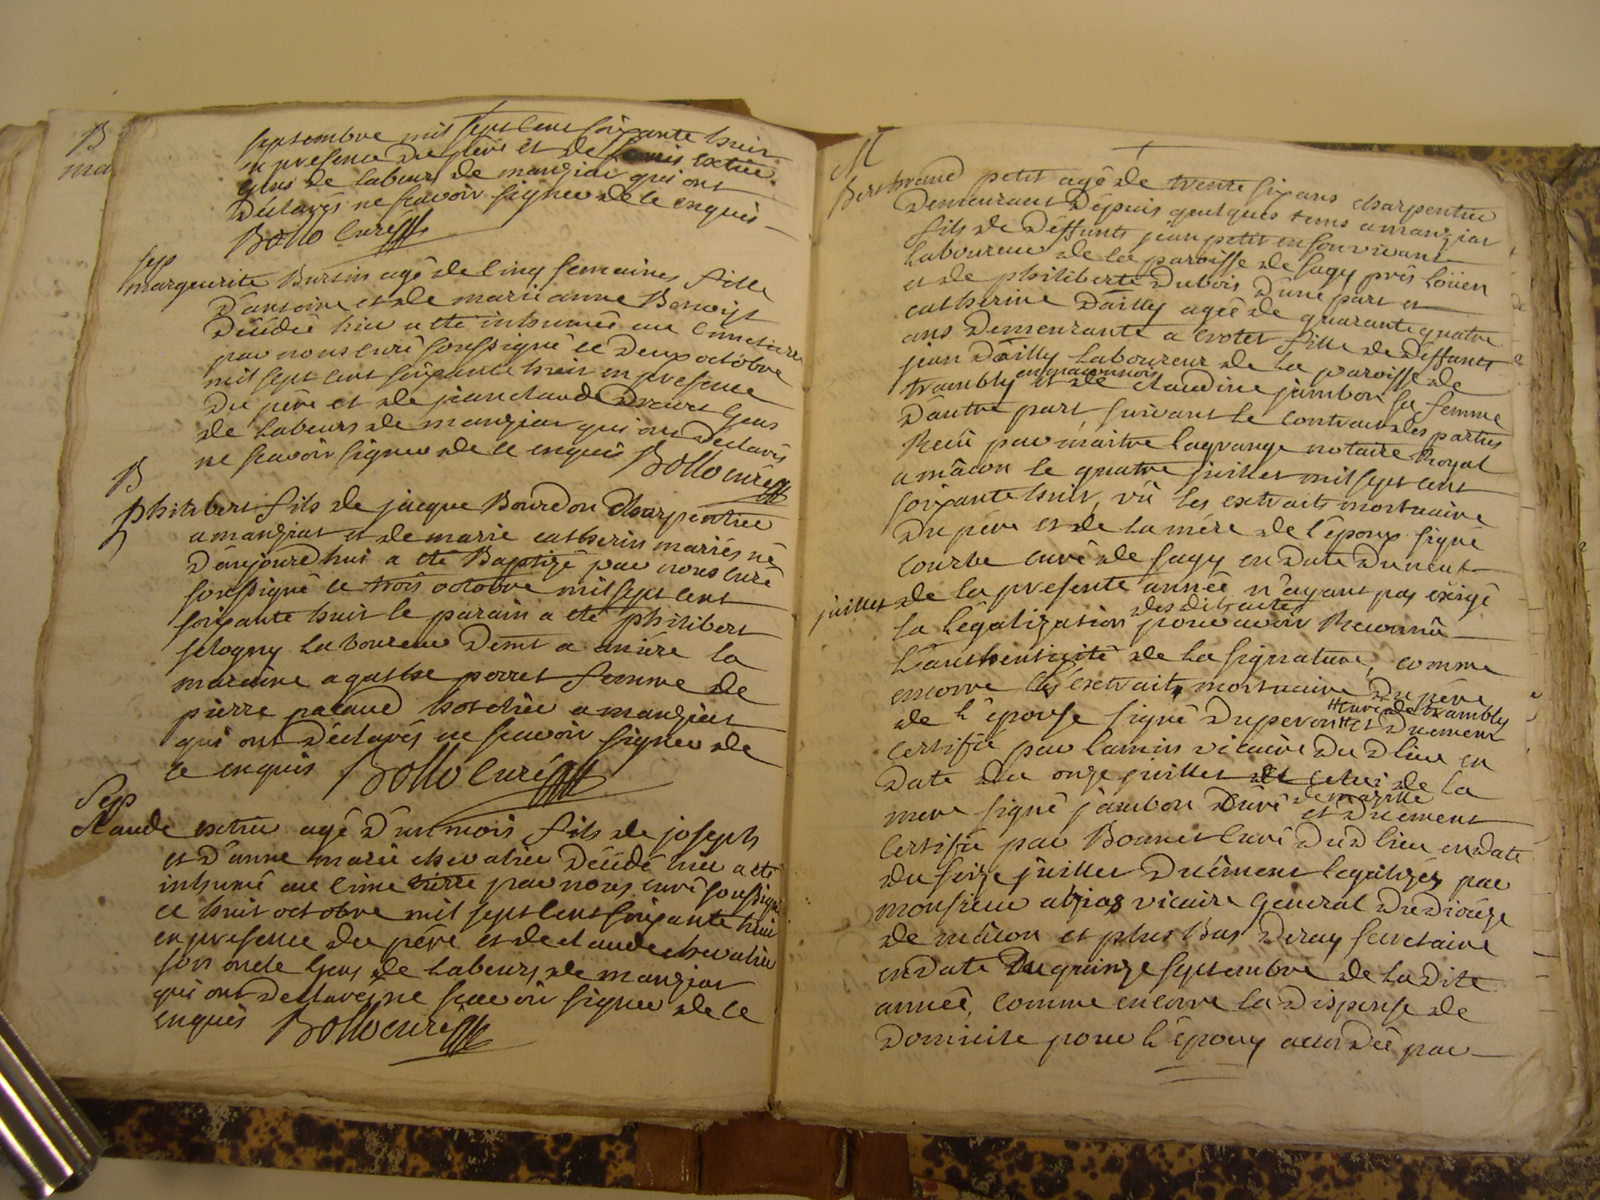 B
ma
septembre mil sept cent soixante huit
en presence du père et de denis extier
gens de labeurs de manziat qui ont
déclarés ne scavoir signer de ce enquis
Bollo curé
sep
marguerite Bursin agé de cinq semaines fille
d'antoine et de marie anne Benoist
décédée hier a été inhumée au cimetiere
par nous curé soussigné le deux octobre
mil sept cent soixante huit en presence
du pere et de jean claude gens
de labeurs de manziat qui ont déclarés
ne scavoir signer de ce enquis Bollo curé
B
philibert fils de jacque Bourdon charpentier
a manziat et de marie catherin mariés né
d'aujourd'hui a été Baptizé par nous curé
soussigné le trois octobre mil sept cent
soixante huit le parain a été philibert
laboureur demt a la
maraine agathe perret femme de
pierre pacaud a manziat
qui ont déclarés ne scavoir signer de
ce enquis Bollo curé
Sep
Claude extier agé d'un mois fils de joseph
et d'anne marie chevalier décédé hier a été
inhumé au cimetierre par nous curé soussigné
le huit octobre mil sept cent soixante huit
en presence du père et de claude chevalier
son oncle gens de labeurs de manziat
qui ont declarés ne scavoir signer de ce
enquis Bollo curé
M
Berthrand petit agé de trente six ans charpentier
demeurant depuis quelques tems a manziat
fils de deffunts jean petit en son vivant
laboureur de la paroisse de sagy près
et de philiberte Dubois d'une part et
catherine Dailly agée de quarante quatre
ans demeurante a crotet fille de deffunts
jean Dailly laboureur de la paroisse de
trambly en maconnois et de claudine jambon sa femme
d'autre part, suivant le contrac des parties
Receu par maitre lagrange notaire Royal
a mâcon le quatre juillet mil sept cent
soixante huit, vû les extraits mortuaire
du père et de la mére de l'époux signé
courbe curé de sagy en date du neuf
juillet de la presente année n'ayant pas éxigé
la légalization des dits actes pour avoir Reconnu
l'authenticité de la signature, comme
encorre les extraits mortuaire du père
de l'épouse signé duperon curé de trambly et duement
certifié par lamin vicaire dud lieu en
date du onze juillet et celui de la
mere signé jambon curé de mazille et duement
certifié par Bonnet curé dud lieu en date
du seize juillet duëment legalizés par
monsieur vicaire general du dioceze
de mâcon et plus bas Deray secretaire
en date du quinze septembre de la dite
année, comme encorre la dispense de
domicile pour l'époux accordée par